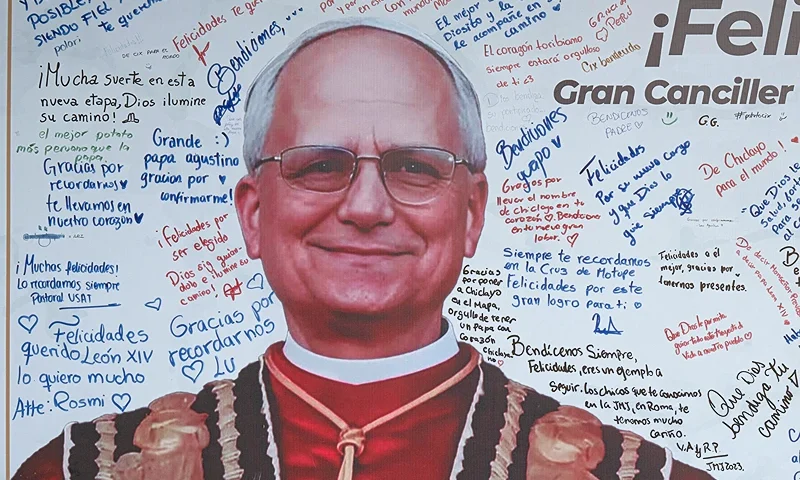 POSIBLE
SIENDO FIEL A
te queremos
polari
Felicidades
te
¡Mucha suerte en esta
nueva etapa, Dios ilumine
su camino!
el mejor potato
más peruano que la
papa.
Gracias por
recordarnos
te llevamos en
nuestro corazón
¡Muchas felicidades!
Lo recordamos siempre
Pastoral USAT
Felicidades
querido León XIV
lo quiero mucho
Atte: Rosmi
Bendiciones,
Grande :)
papa agustino
gracias por
confirmarme!
¡Felicidades por
ser elegido
Dios siga guian-
dolo e ilumine su
camino!
Gracias por
recordarnos
LU
El mejor
Diosito
le acompañe en
camino
El corazón toribiano
siempre estará orgulloso
de ti <3
Cix bendecido
GRACIAS
PERÚ
Bendiciones
guapo
Gracias por
llevar el nombre
de Chiclayo en tu
corazón. Bendiciones
en tu nuevo gran
labor.
BENDICENOS
PADRE
G.G.
Felicidades
Por su nuevo cargo
y que Dios lo
guie siempre
De Chiclayo
para el mundo!
Siempre te recordamos
en la Cruz de Motupe
Felicidades por este
gran logro para ti
Felicidades a el
mejor, gracias por
tenernos presentes.
Gracias
por poner
a Chiclayo
en el Mapa,
orgullo de tener
un papa con
corazón
Chiclayano
Bendícenos Siempre,
Felicidades, eres un ejemplo a
seguir. los chicos que te conocimos
en la JMJ, en Roma, te
tenemos mucho
cariño.
V.A y R.P
JMJ 2023.
Que Dios le permita
guiar todo
Vida a nuestro pueblo
Que Dios
bendiga tu
camino
"Que Dios le
Salud,
para
al
¡Feli
Gran Canciller